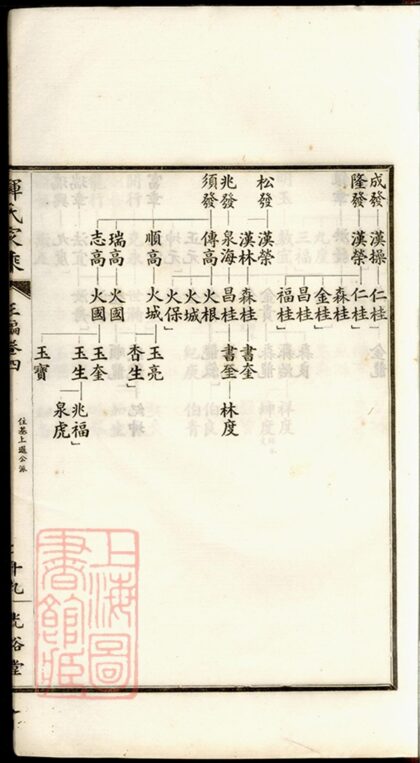 成發 漢操 仁桂
隆發 漢榮 仁桂
森桂
金桂
昌桂
福桂
松發 漢榮
漢林 森桂 書奎
兆發 泉海 昌桂 書奎 林度
須發 傳高 火根
火城
火保
順高 火城 玉亮
杏生
瑞高 火國 玉奎
志高 火國 玉生 兆福
泉虎
玉寶
惲氏家乘
卷四
光裕堂
上海圖
書館藏